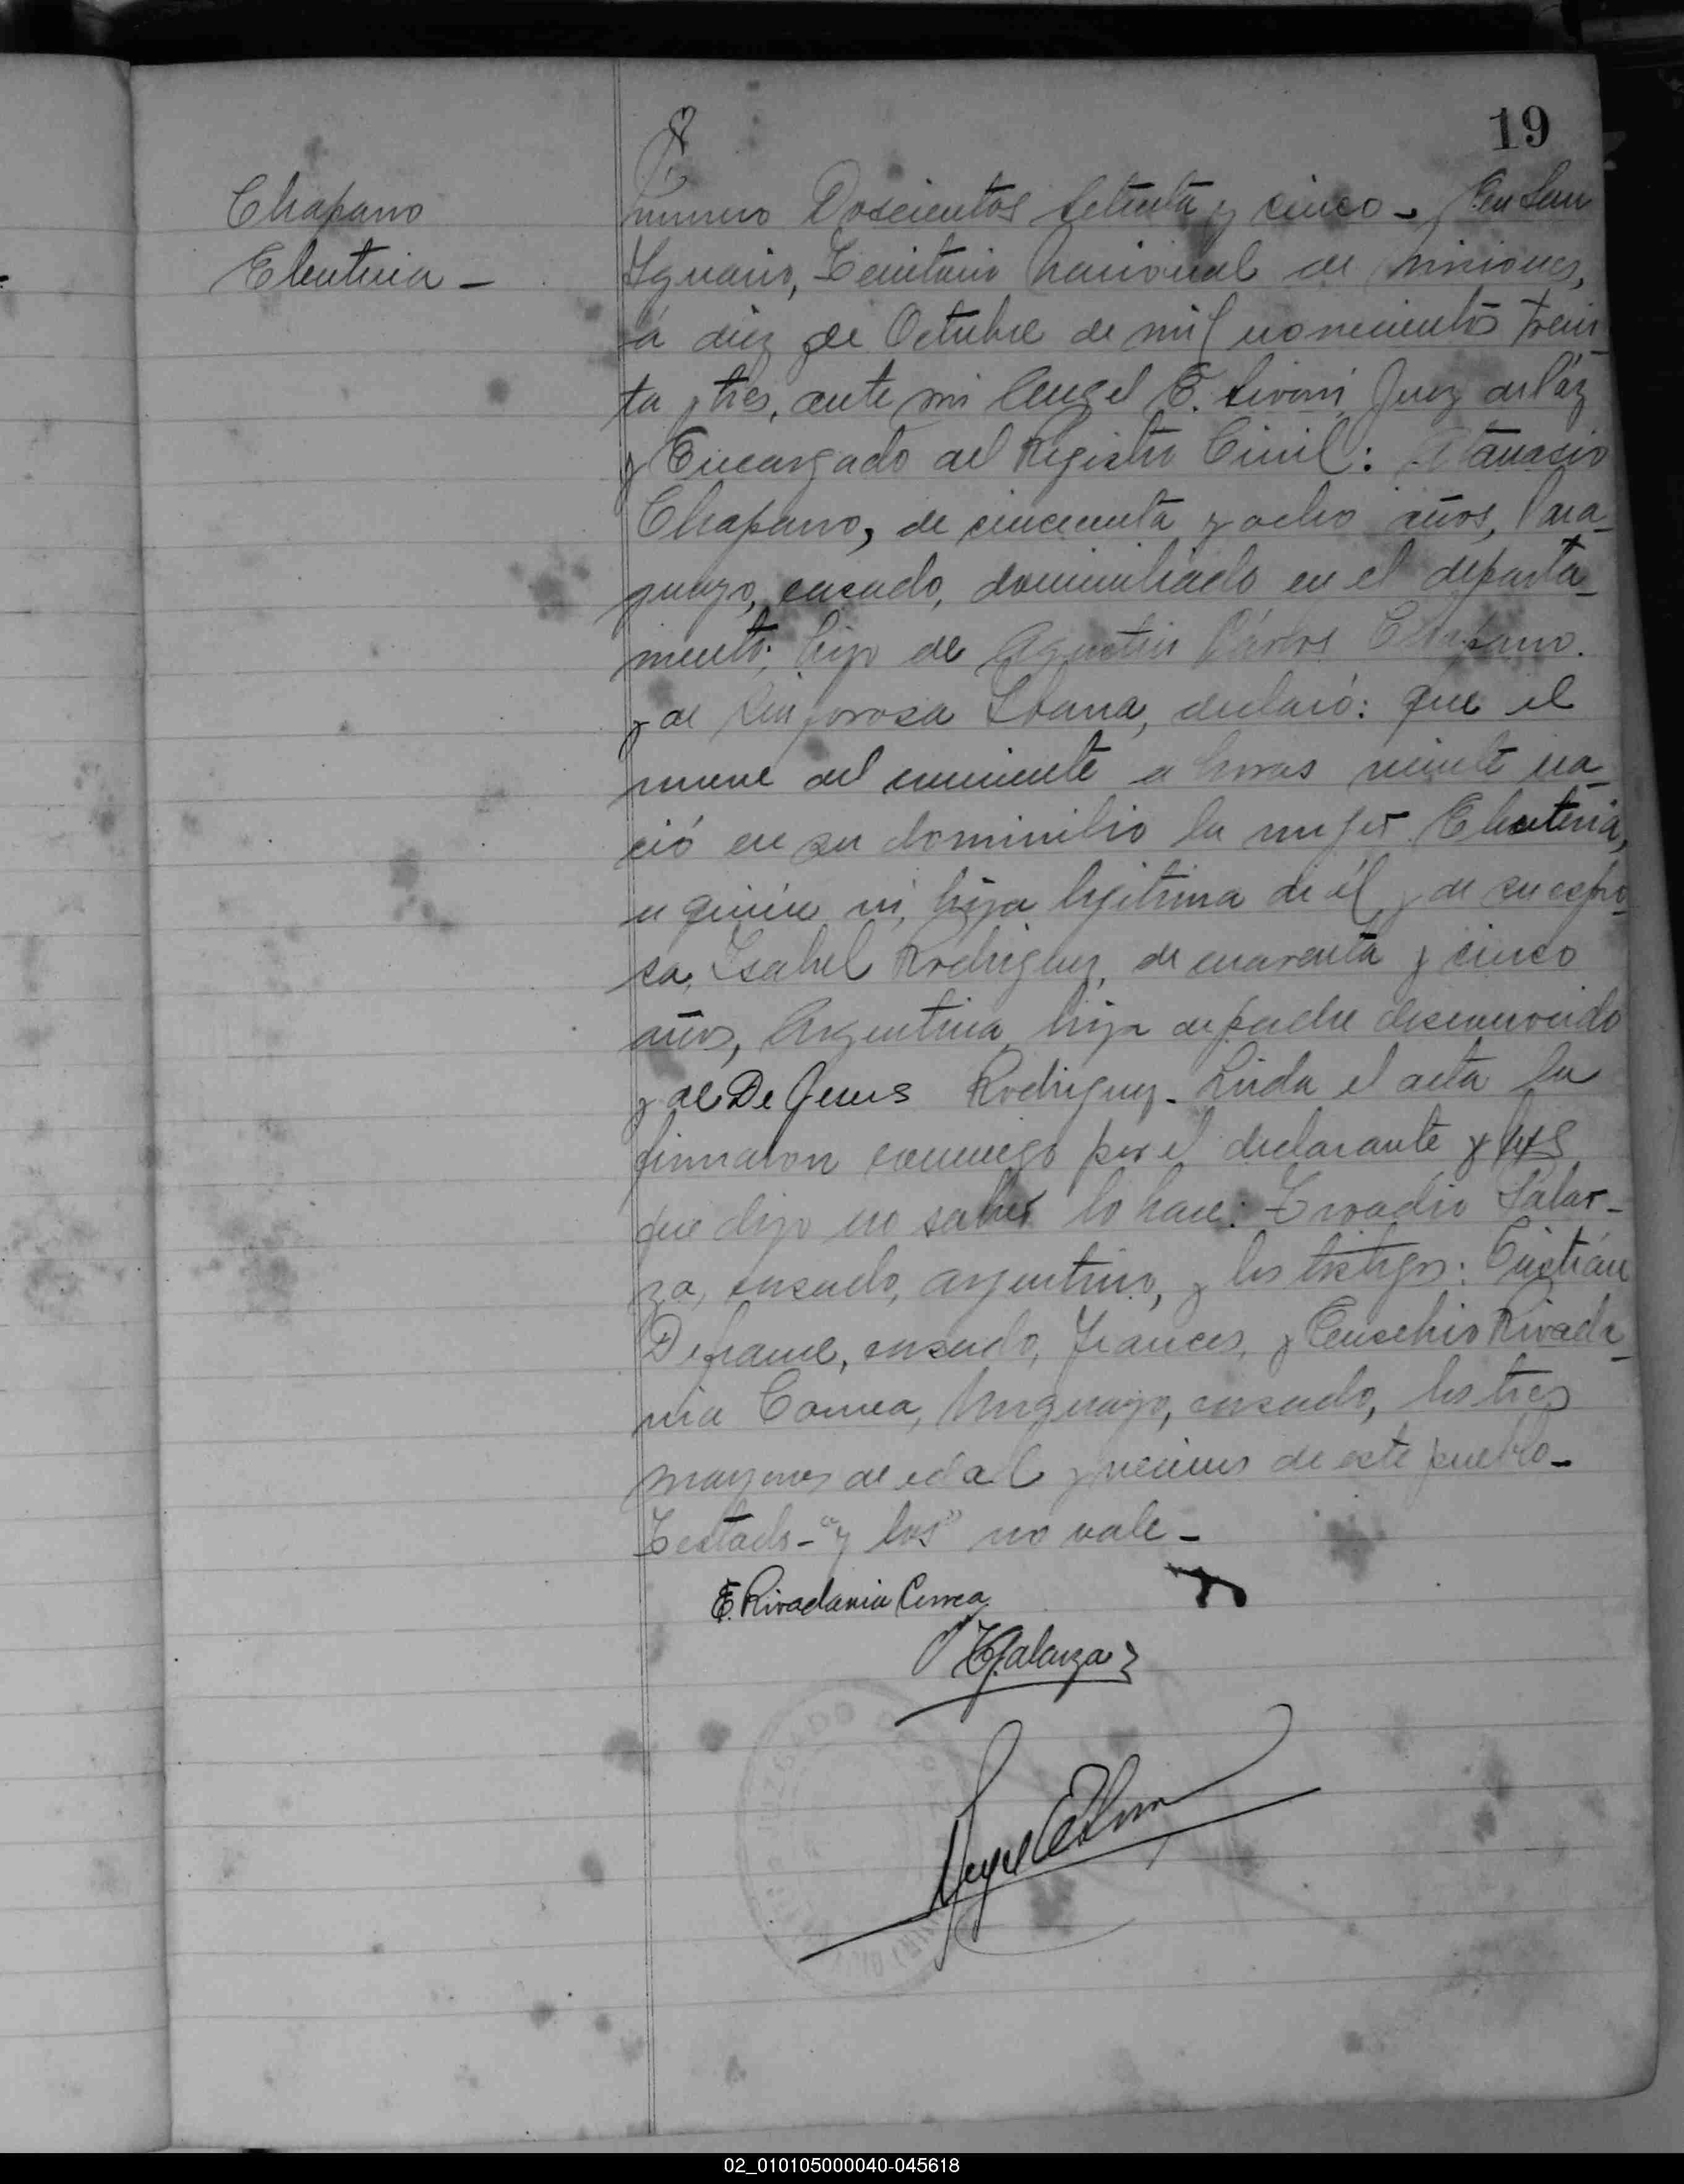 19
Chaparro
Eleuteria -
numero Doscientos setenta y cinco - En San
Ygnacio, Territorio Nacional de Misiones,
á diez de Octubre de mil novecientos trein-
ta y tres, ante mi Angel E. Juez de Páz
y Encargado del Registro Civil: Atanacio
Chaparro, de cincuenta y ocho años, Para-
guayo, casado, domiciliado en el departa-
mento; hijo de Agustin Cárlos Chaparro.
y de Sinforosa declaró: que el
nueve del corriente a horas veinte na-
ció en su domicilio la mujer Eleuteria,
a quién ví, hija legitima de él y de su espo-
sa, Isabel Rodriguez, de cuarenta y cinco
años, Argentina, hija de padre desconocido
y de De Jesus Rodriguez. Leida el acta la
firmaron conmigo por el declarante y los
que dijo no saber lo hace: Galar-
za, casado, argentino, y los testigos: Cristián
casado, frances, y Eusebio Rivada-
via Correa, Uruguayo, casado, los tres
mayores de edad y vecinos de este pueblo -
Testado - "y los" no vale -
E. Rivadavia Correa
Galarza
Angel E
JUZGADO
02_010105000040-045618